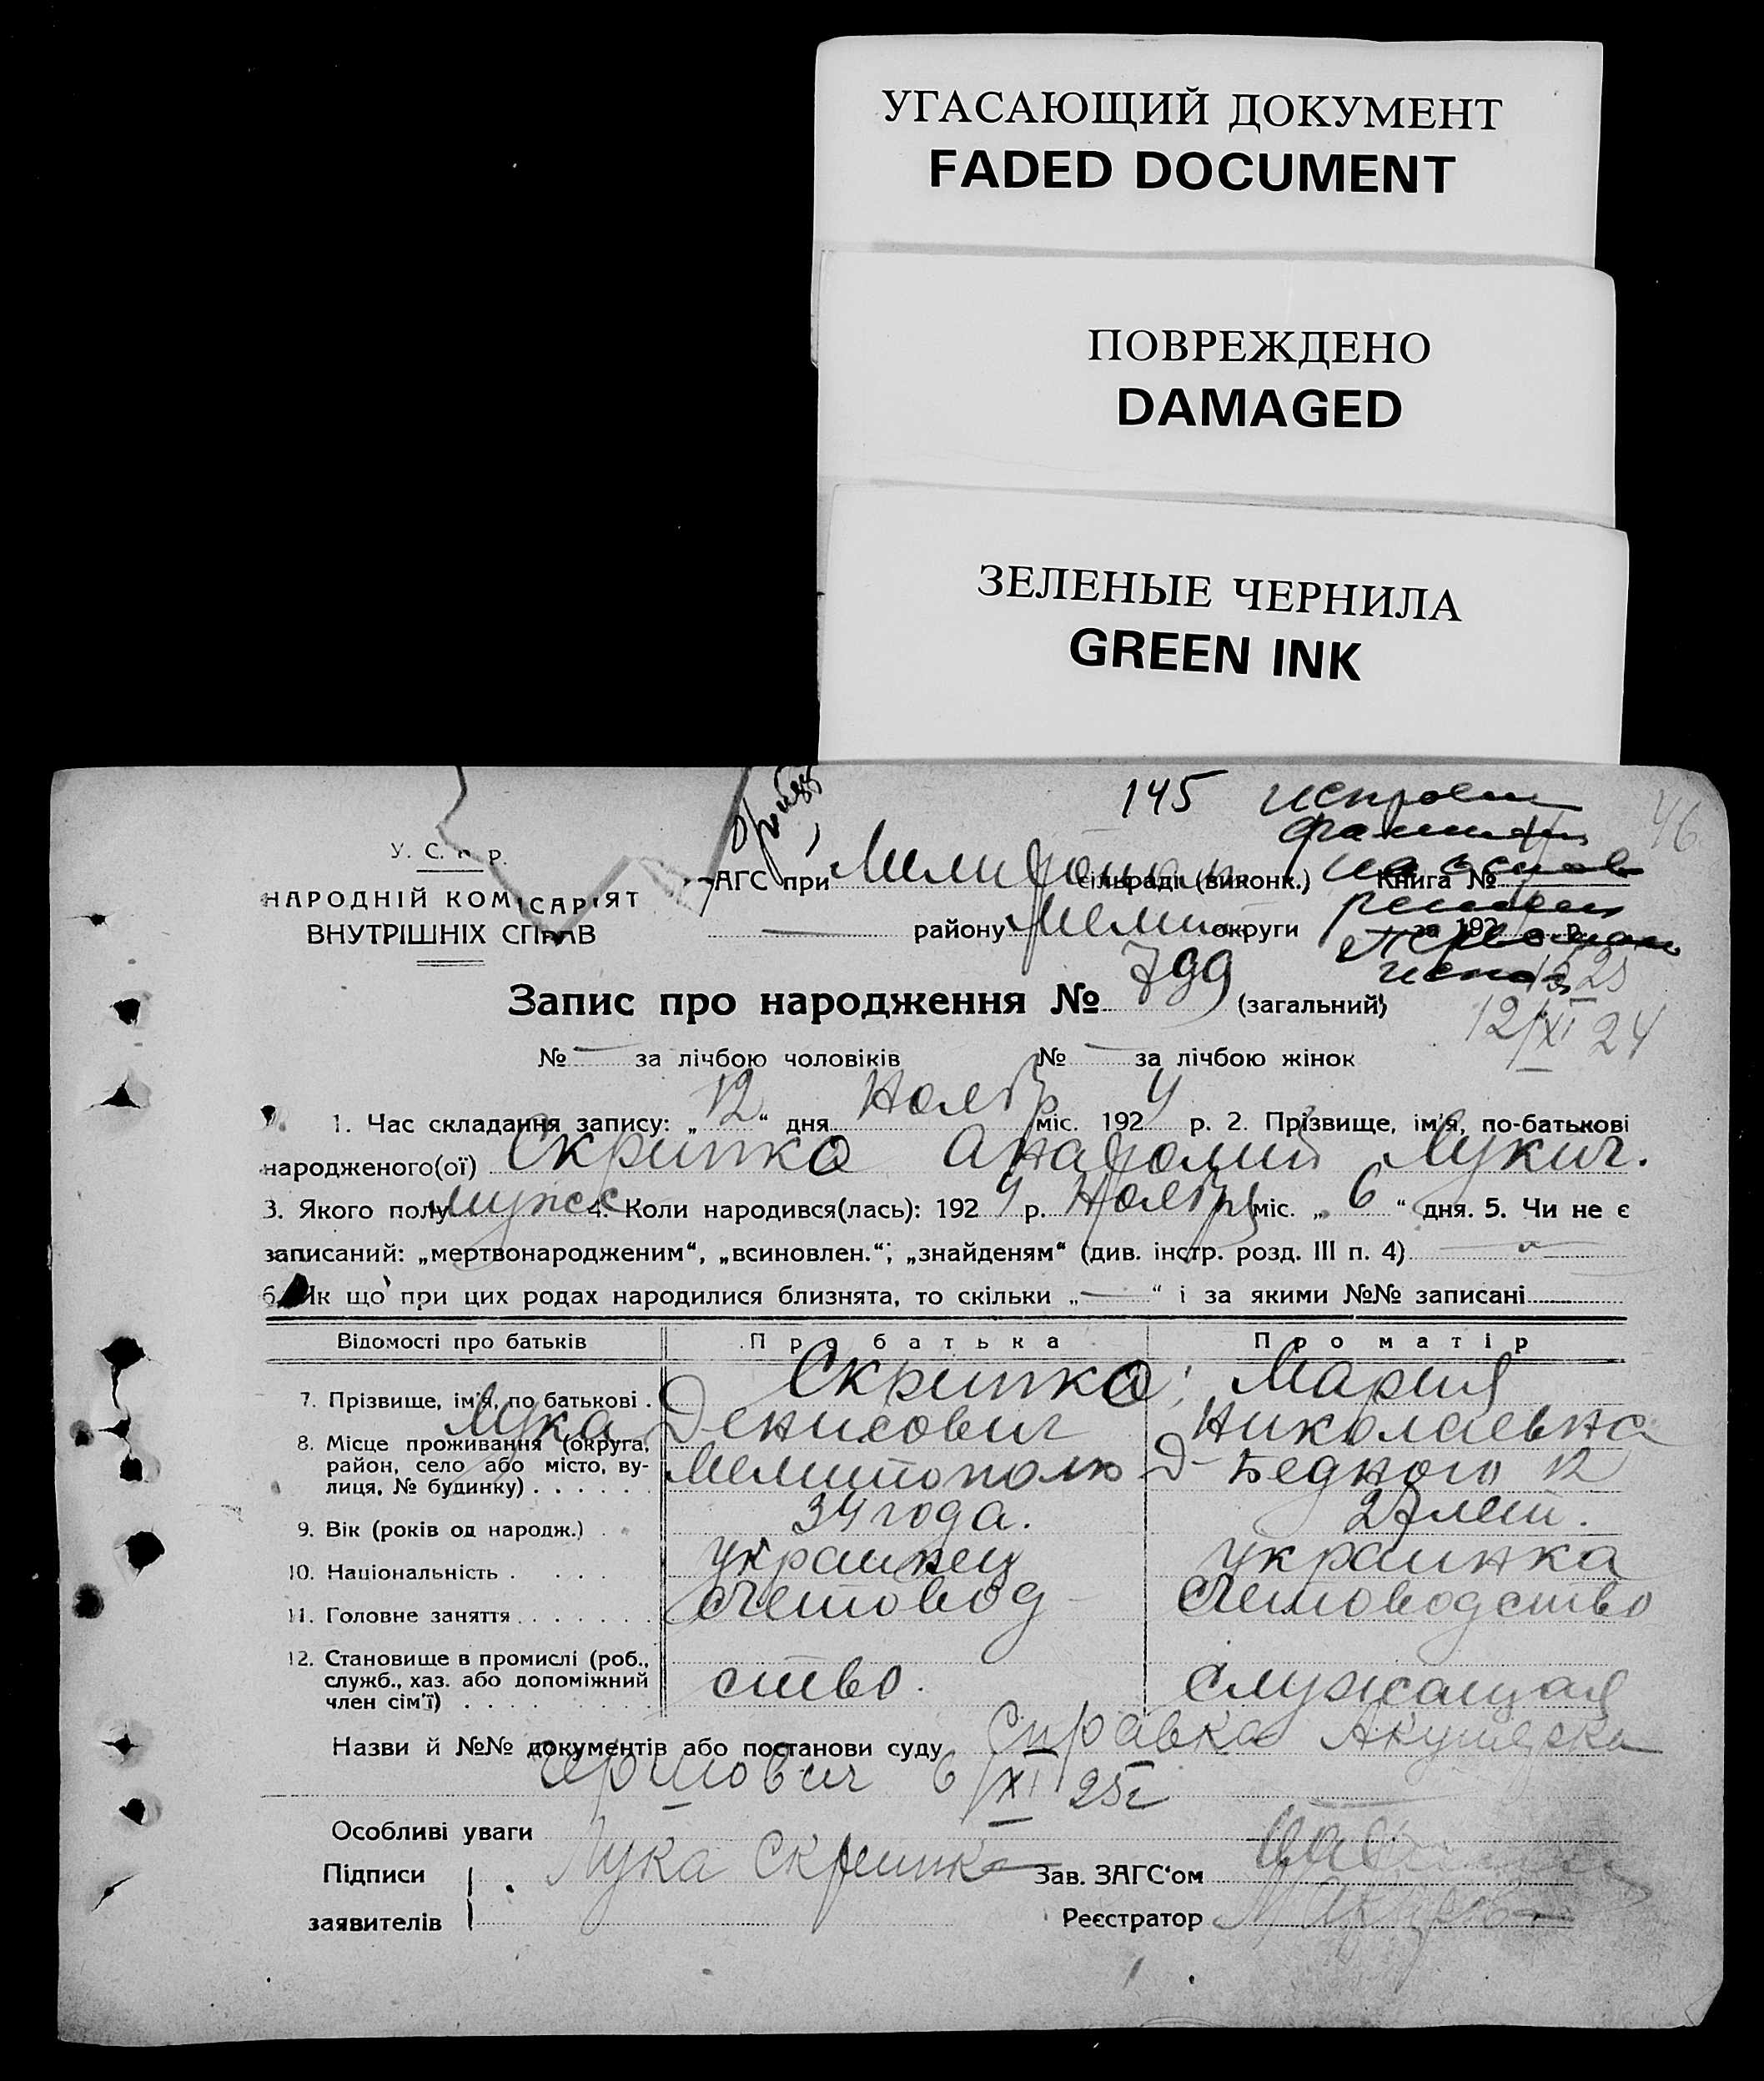 УГАСАЮЩИЙ ДОКУМЕНТ
FADED DOCUMENT
ПОВРЕЖДЕНО
DAMAGED
ЗЕЛЕНЫЕ ЧЕРНИЛА
GREEN INK
145 46
У. С. Р.
НАРОДНІЙ КОМІСАРІЯТ
ВНУТРІШНІХ СПРАВ
АГС при сільраді (виконк.) Книга №
— району Мелит округи за 192 р.
Запис про народження № 799 (загальний)
12/XI 24
№ — за лічбою чоловіків № — за лічбою жінок
1. Час складання запису: „12“ дня Ноябр міс. 1924 р. 2. Прізвище, ім'я, по-батькові
народженого(ої) Скрипко Анатолий Лукич.
3. Якого полу мужс 4. Коли народився(лась): 1924 р. Ноября міс. „6“ дня. 5. Чи не є
записаний: „мертвонародженим“, „всиновлен.“; „знайденям“ (див. інстр. розд. III п. 4)
6. Як що при цих родах народилися близнята, то скільки „—“ і за якими №№ записані
Відомості про батьків Про батька Про матір
7. Прізвище, ім'я, по батькові . Скрипко Мария
Лука Денисович Николаевна
8. Місце проживання (округа,
район, село або місто, ву-
лиця, № будинку) . . . . . . Мелитополь Д-Бедного 12
9. Вік (років од народж.) . 34 года. 27 лет.
10. Національність . . . . украинец украинка
11. Головне заняття . . . . . . . счетовод счетоводство
12. Становище в промислі (роб.,
служб., хаз. або допоміжний
член сім'ї) . . . . ство. служащая
Назви й №№ документів або постанови суду Справка Акушерки
6/XI 25г
Особливі уваги
Підписи Лука Скрипко Зав. ЗАГС'ом
заявителів Реєстратор